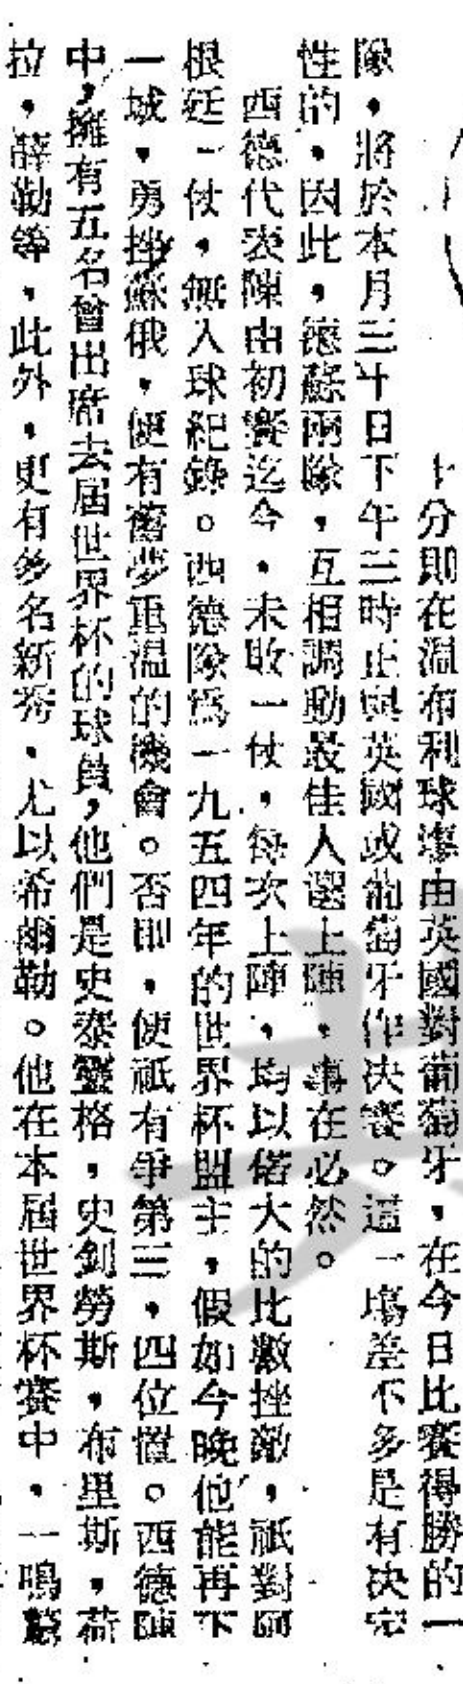 十分則在温布利球塲由英國對葡萄牙，在今日比賽得勝的一
隊，將於本月三十日下午三時正與英國或葡萄牙作决賽。這一塲差不多是有决定
性的，因此，德蘇兩隊，互相調動最佳人選上陣，事在必然。
西德代表隊由初賽迄今，未敗一仗，每次上陣，均以偌大的比數挫敵，祇對阿
根廷一仗，無入球紀錄。西德隊爲一九五四年的世界杯盟主，假如今晚他能再下
一城，勇挫蘇俄，便有舊夢重温的機會。否即，便祇有爭第三，四位置。西德陣
中，擁有五名曾出席去屆世界杯的球員，他們是史泰靈格，史釗勞斯，布里斯，荷
拉，薛勒等，此外，更有多名新秀，尤以希爾勒。他在本屆世界杯賽中，一鳴驚